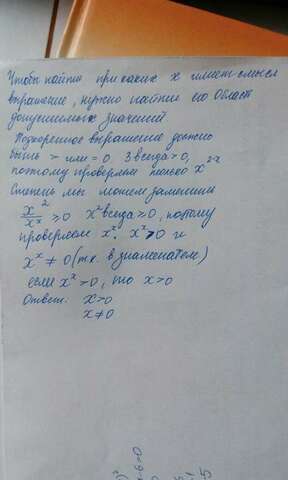 Чтобы найти при каких x имеет смысл
выражение, нужно найти его область
допустимых значений
Подкоренное выражение должно
быть > или = 0, 3 всегда > 0,
поэтому проверяем только x^2-x
Степень мы можем заменить
x^2/x^x ≥ 0 x^2 всегда ≥ 0, потому
проверяем x^x: x^x > 0 и
x^x ≠ 0 (т.к. в знаменателе)
если x^x > 0, то x > 0
Ответ: x > 0
x ≠ 0